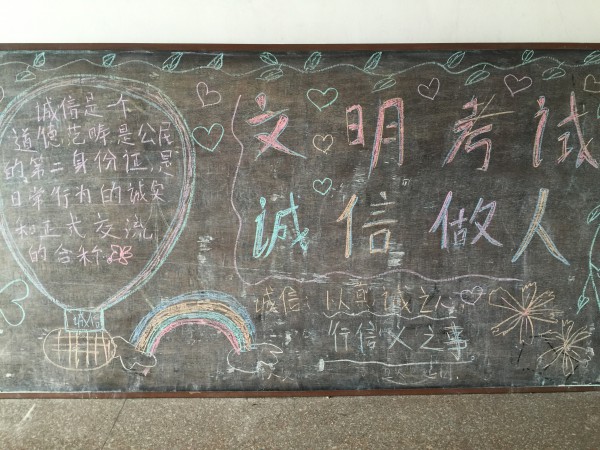 诚信是一个
道德范畴是公民
的第二身份证,是
日常行为的诚实
和正式交流
的合称
诚信
文明考试
诚信做人
诚信:以真诚之心
行信义之事